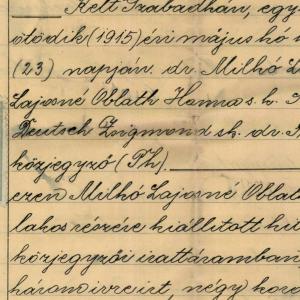 Kelt Szabadkán, egy
ötödik (1915) évi május hó
(23) napján. dr. Milkó L
Lajosné Oblath Hanna s. k.
Deutsch Zsigmond sk. dr.
közjegyző (P.h.)
ezen Milkó Lajosné Obla
lakos részére kiállitott hit
közjegyzői irattáramban
három ivre irt, négy koro